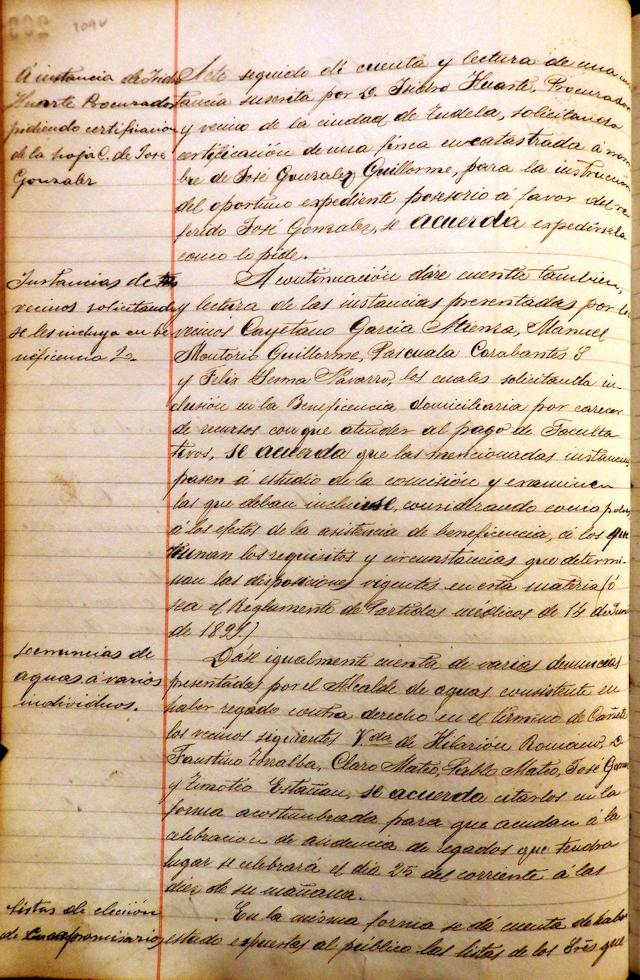 209v
A instancia de Isidro
Huarte Procurador
pidiendo certificacion
de la hoja C. de José
Gonzalez
Acto seguido dí cuenta y lectura de una ins
tancia suscrita por D. Isidro Huarte, Procurador
y vecino de la ciudad de Tudela, solicitando
certificación de una finca encatastrada á nom
bre de José Gonzalez Guillorme, para la instrucción
del oportuno expediente posesorio á favor del re
ferido José Gonzalez, se acuerda expedírsela
como lo pide.
Instancias de
vecinos solicitando
se les incluya en be
neficencia
A continuación dáse cuenta tambien,
y lectura de las instancias presentadas por los
vecinos Cayetano Garcia Atienza, Manuel
Montorio Guillorme, Pascuala Carabantes
y Felix Serma Navarro, los cuales solicitan la in-
clusión en la Beneficencia domiciliaria por carecer
de recursos con que atender al pago de Faculta
tivos, se acuerda que las mencionadas instancias
pasen á estudio de la comisión y examinen
las que deban incluirse, considerando como pobres
á los efectos de la asistencia de beneficencia, á los que
reunan los requisitos y circunstancias que determi
nan las disposiciones vigentes en esta materia (ó
sea el Reglamento de Partidos médicos de 14 de Junio
de 1891)
Denuncias de
aguas á varios
individuos.
Dáse igualmente cuenta de varias denuncias
presentadas por el Alcalde de aguas consistente en
haber regado contra derecho en el termino de Cañete
los vecinos siguientes Vda de Hilarión Romano, D.
Faustino Torralba, Claro Mateo, Pablo Mateo, José
y Timoteo Estañan, se acuerda citarlos en la
forma acostumbrada para que acudan á la
celebracion de audiencia de regados que tendra
lugar se celebrará el dia 25 del corriente á las
diez de su mañana.
Listas de elección
de compromisarios
En la misma forma se dá cuenta de haber
estado expuestas al público las listas de los Sres que